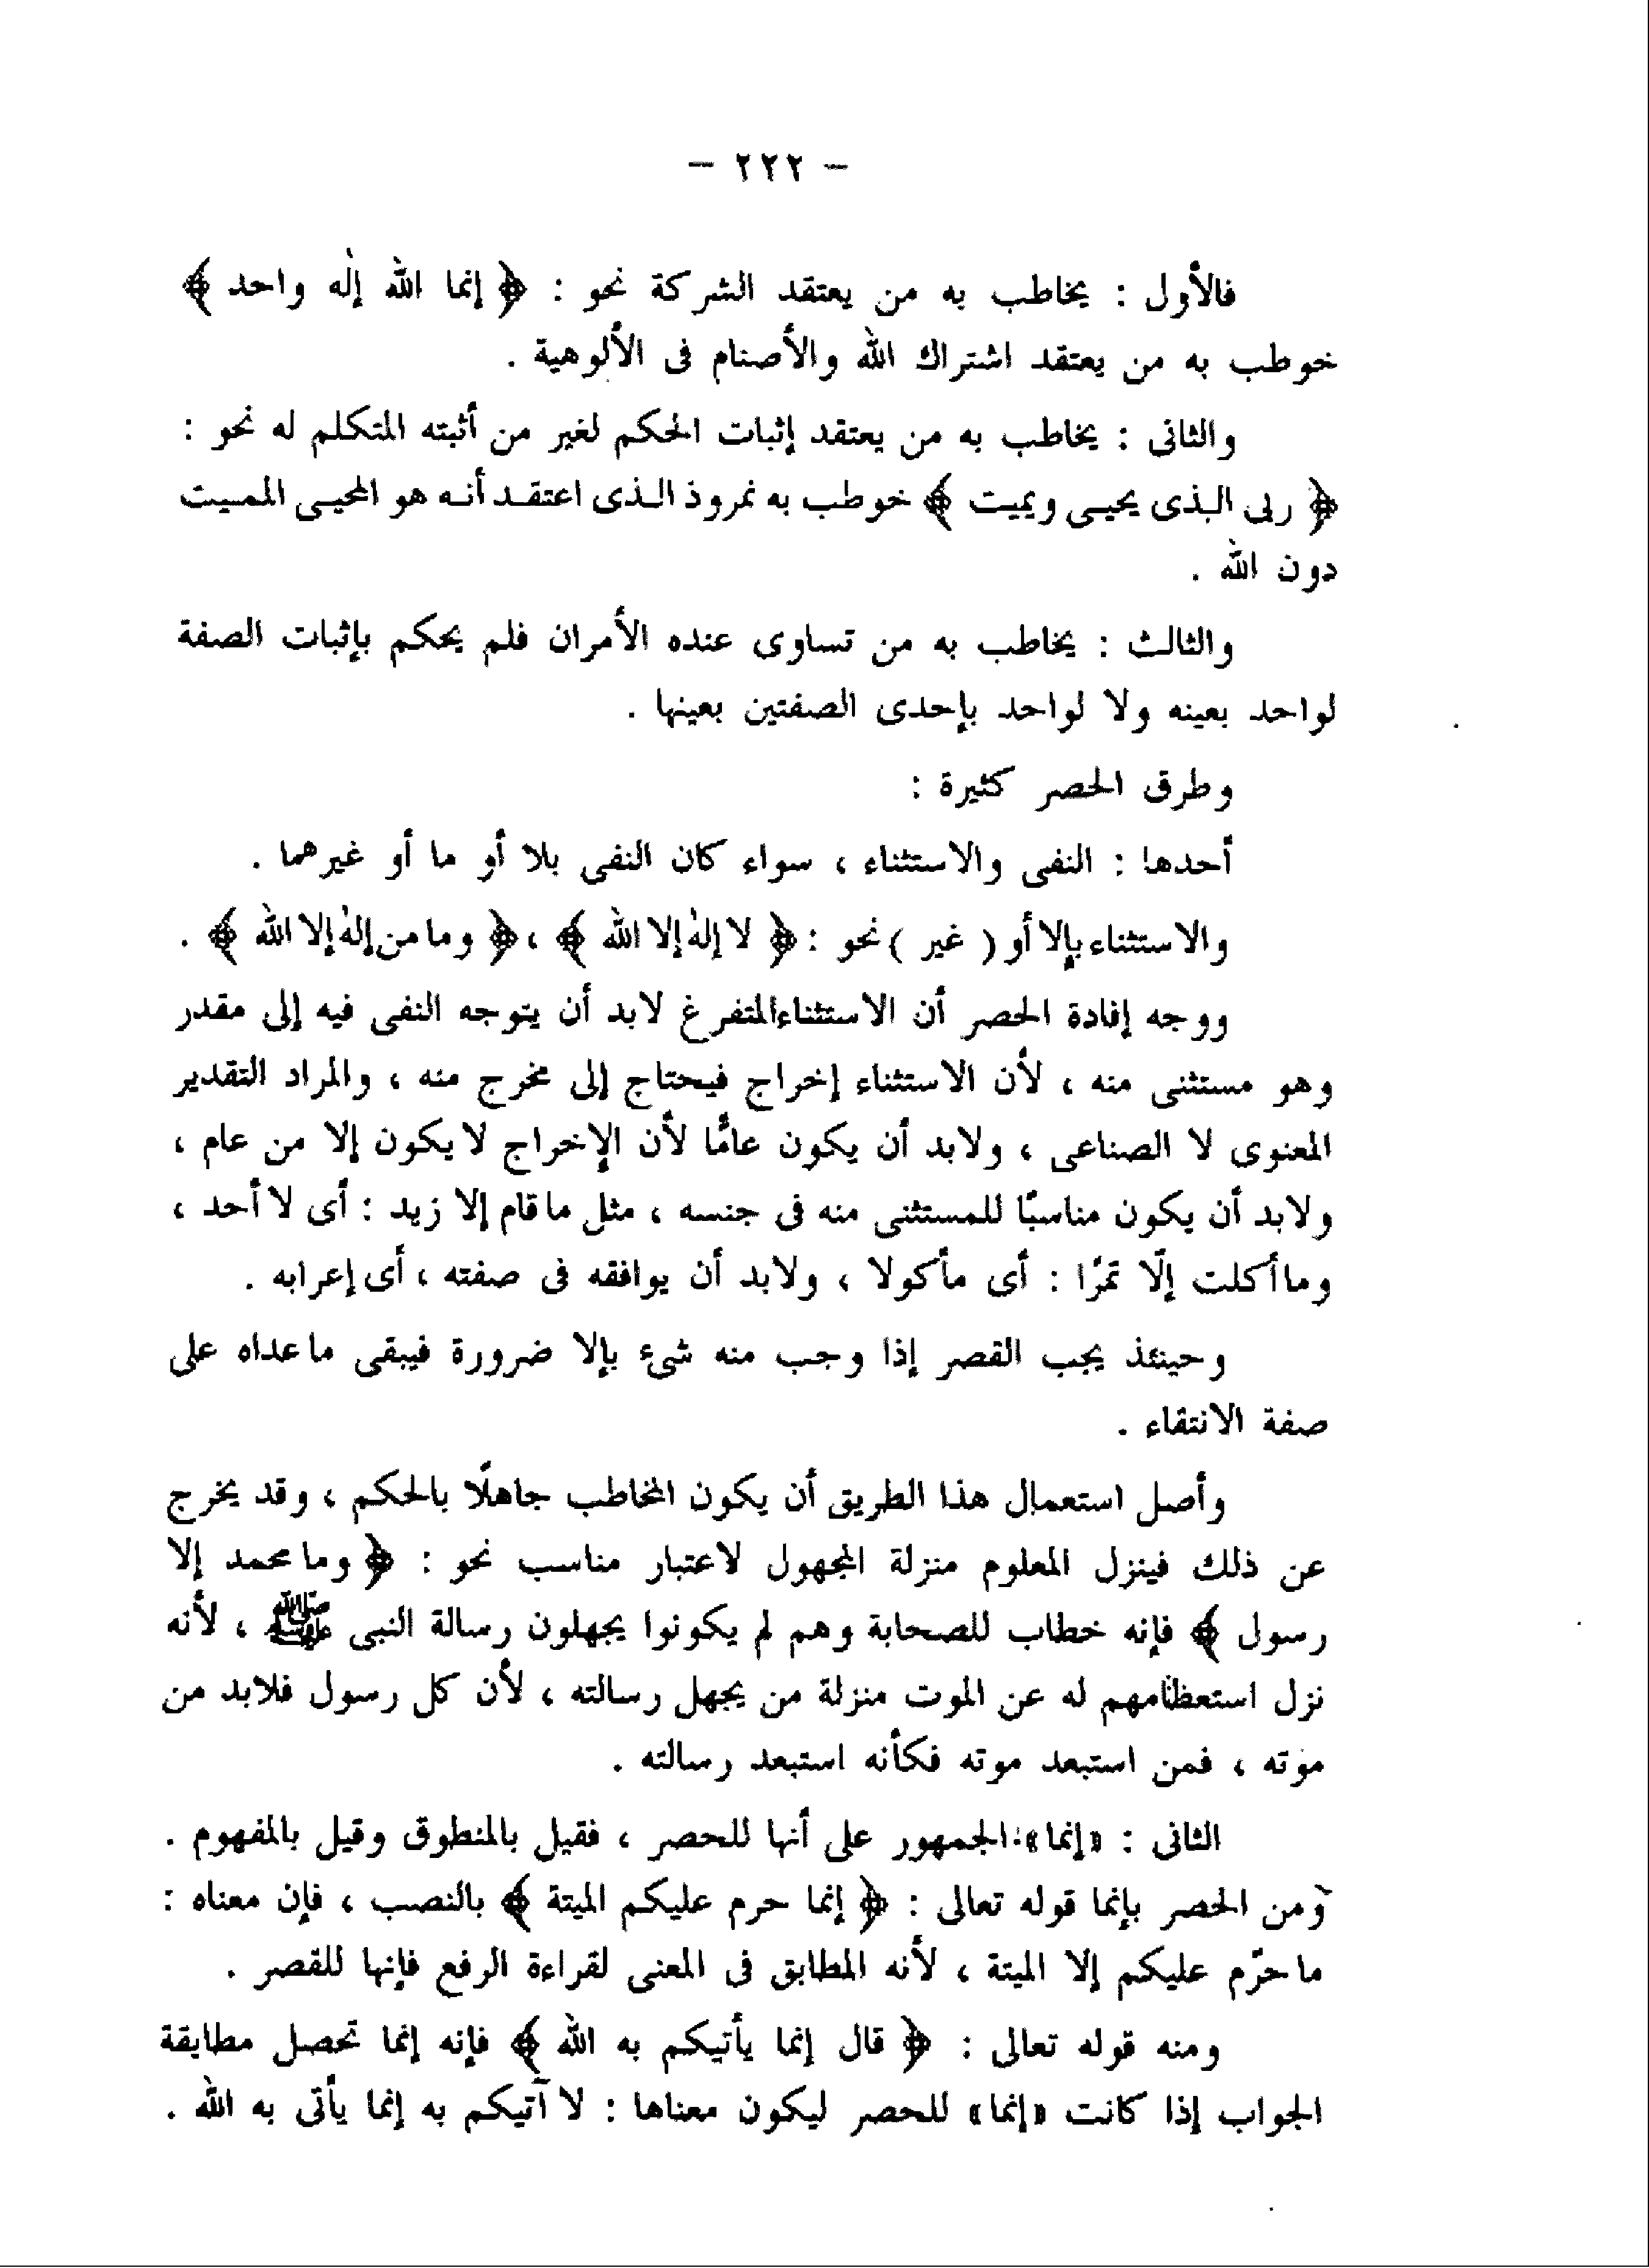 – ٢٢٢ –
فالأول : يخاطب به من يعتقد الشركة نحو : ﴿ إنما الله إلٰه واحد ﴾
خوطب به من يعتقد اشتراك الله والأصنام فى الألوهية .
والثانى : يخاطب به من يعتقد إثبات الحكم لغير من أثبته المتكلم له نحو :
﴿ ربى الذى يحيى ويميت ﴾ خوطب به نمروذ الذى اعتقد أنه هو المحيى المميت
دون الله .
والثالث : يخاطب به من تساوى عنده الأمران فلم يحكم بإثبات الصفة
لواحد بعينه ولا لواحد بإحدى الصفتين بعينها .
وطرق الحصر كثيرة :
أحدها : النفى والاستثناء ، سواء كان النفى بلا أو ما أو غيرهما .
والاستثناء بإلا أو ( غير ) نحو : ﴿ لا إلٰه إلا الله ﴾ ، ﴿ وما من إلٰه إلا الله ﴾ .
ووجه إفادة الحصر أن الاستثناء المتفرغ لابد أن يتوجه النفى فيه إلى مقدر
وهو مستثنى منه ، لأن الاستثناء إخراج فيحتاج إلى مخرج منه ، والمراد التقدير
المعنوى لا الصناعى ، ولابد أن يكون عامًّا لأن الإخراج لا يكون إلا من عام ،
ولابد أن يكون مناسبًا للمستثنى منه فى جنسه ، مثل ما قام إلا زيد : أى لا أحد ،
وما أكلت إلّا تمرًا : أى مأكولا ، ولابد أن يوافقه فى صفته ، أى إعرابه .
وحينئذ يجب القصر إذا وجب منه شىء بإلا ضرورة فيبقى ما عداه على
صفة الانتقاء .
وأصل استعمال هذا الطريق أن يكون المخاطب جاهلًا بالحكم ، وقد يخرج
عن ذلك فينزل المعلوم منزلة المجهول لاعتبار مناسب نحو : ﴿ وما محمد إلا
رسول ﴾ فإنه خطاب للصحابة وهم لم يكونوا يجهلون رسالة النبى ﷺ ، لأنه
نزل استعظامهم له عن الموت منزلة من يجهل رسالته ، لأن كل رسول فلابد من
موته ، فمن استبعد موته فكأنه استبعد رسالته .
الثانى : «إنما» : الجمهور على أنها للحصر ، فقيل بالمنطوق وقيل بالمفهوم .
ومن الحصر بإنما قوله تعالى : ﴿ إنما حرم عليكم الميتة ﴾ بالنصب ، فإن معناه :
ما حرّم عليكم إلا الميتة ، لأنه المطابق فى المعنى لقراءة الرفع فإنها للقصر .
ومنه قوله تعالى : ﴿ قال إنما يأتيكم به الله ﴾ فإنه إنما تحصل مطابقة
الجواب إذا كانت «إنما» للحصر ليكون معناها : لا آتيكم به إنما يأتى به الله .